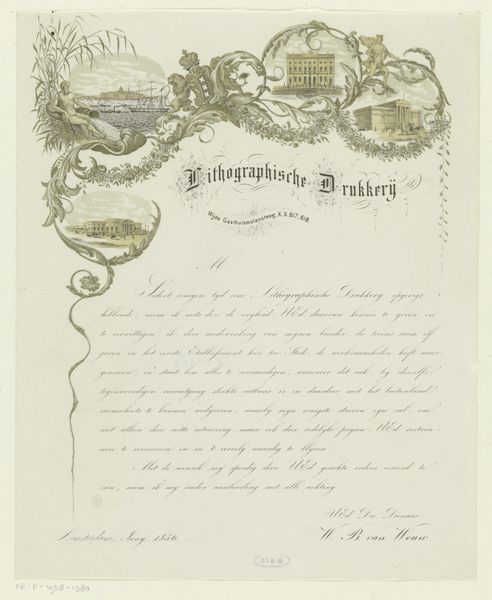 Lithographische Drukkerij
Wijde Gasthuismolensteeg, K.K. 617, 618.
M
Sedert eenigen tyd eene Lithographische Drukkery opgerigt
hebbende, neem ik mits dese de vryheid UEd. daarvan kennis te geven en
te verwittigen, ik, door medewerking van mynen broeder, die tevens ruim elf
jaren in het eerste Etablissement hier ter Stede, de werkzaamheden heeft waar
genomen, in staat ben alles te vervaardigen, waarvoor dit vak, by deszelfs
tegenwoordigen vooruitgang slechts vatbaar is en daardoor met het buitenland
gelyk te kunnen wedyveren, waarby myn eenigste streven zyn zal, om
niet alleen door nette uitvoering, maar ook door redelyke pryzen, UEd. vertrou-
wen te verwerven en in 't vervolg waardig te blyven.
Met de wensch my spoedig door UEd. geachte orders vereerd te
zien, neem ik my onder aanbieding met alle achting
UEd. Dw. Dienaar
Amsterdam, Juny 1856.
W. B. van Wouw
RP-P-1938-1380